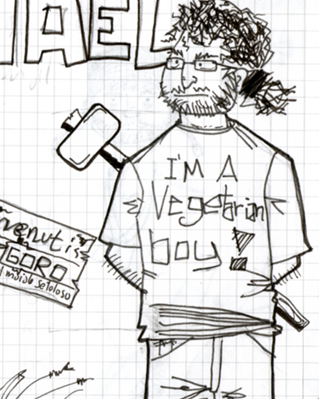 AEL
I'M A
Vegetarian
boy!
venuti
GORO
setoloso